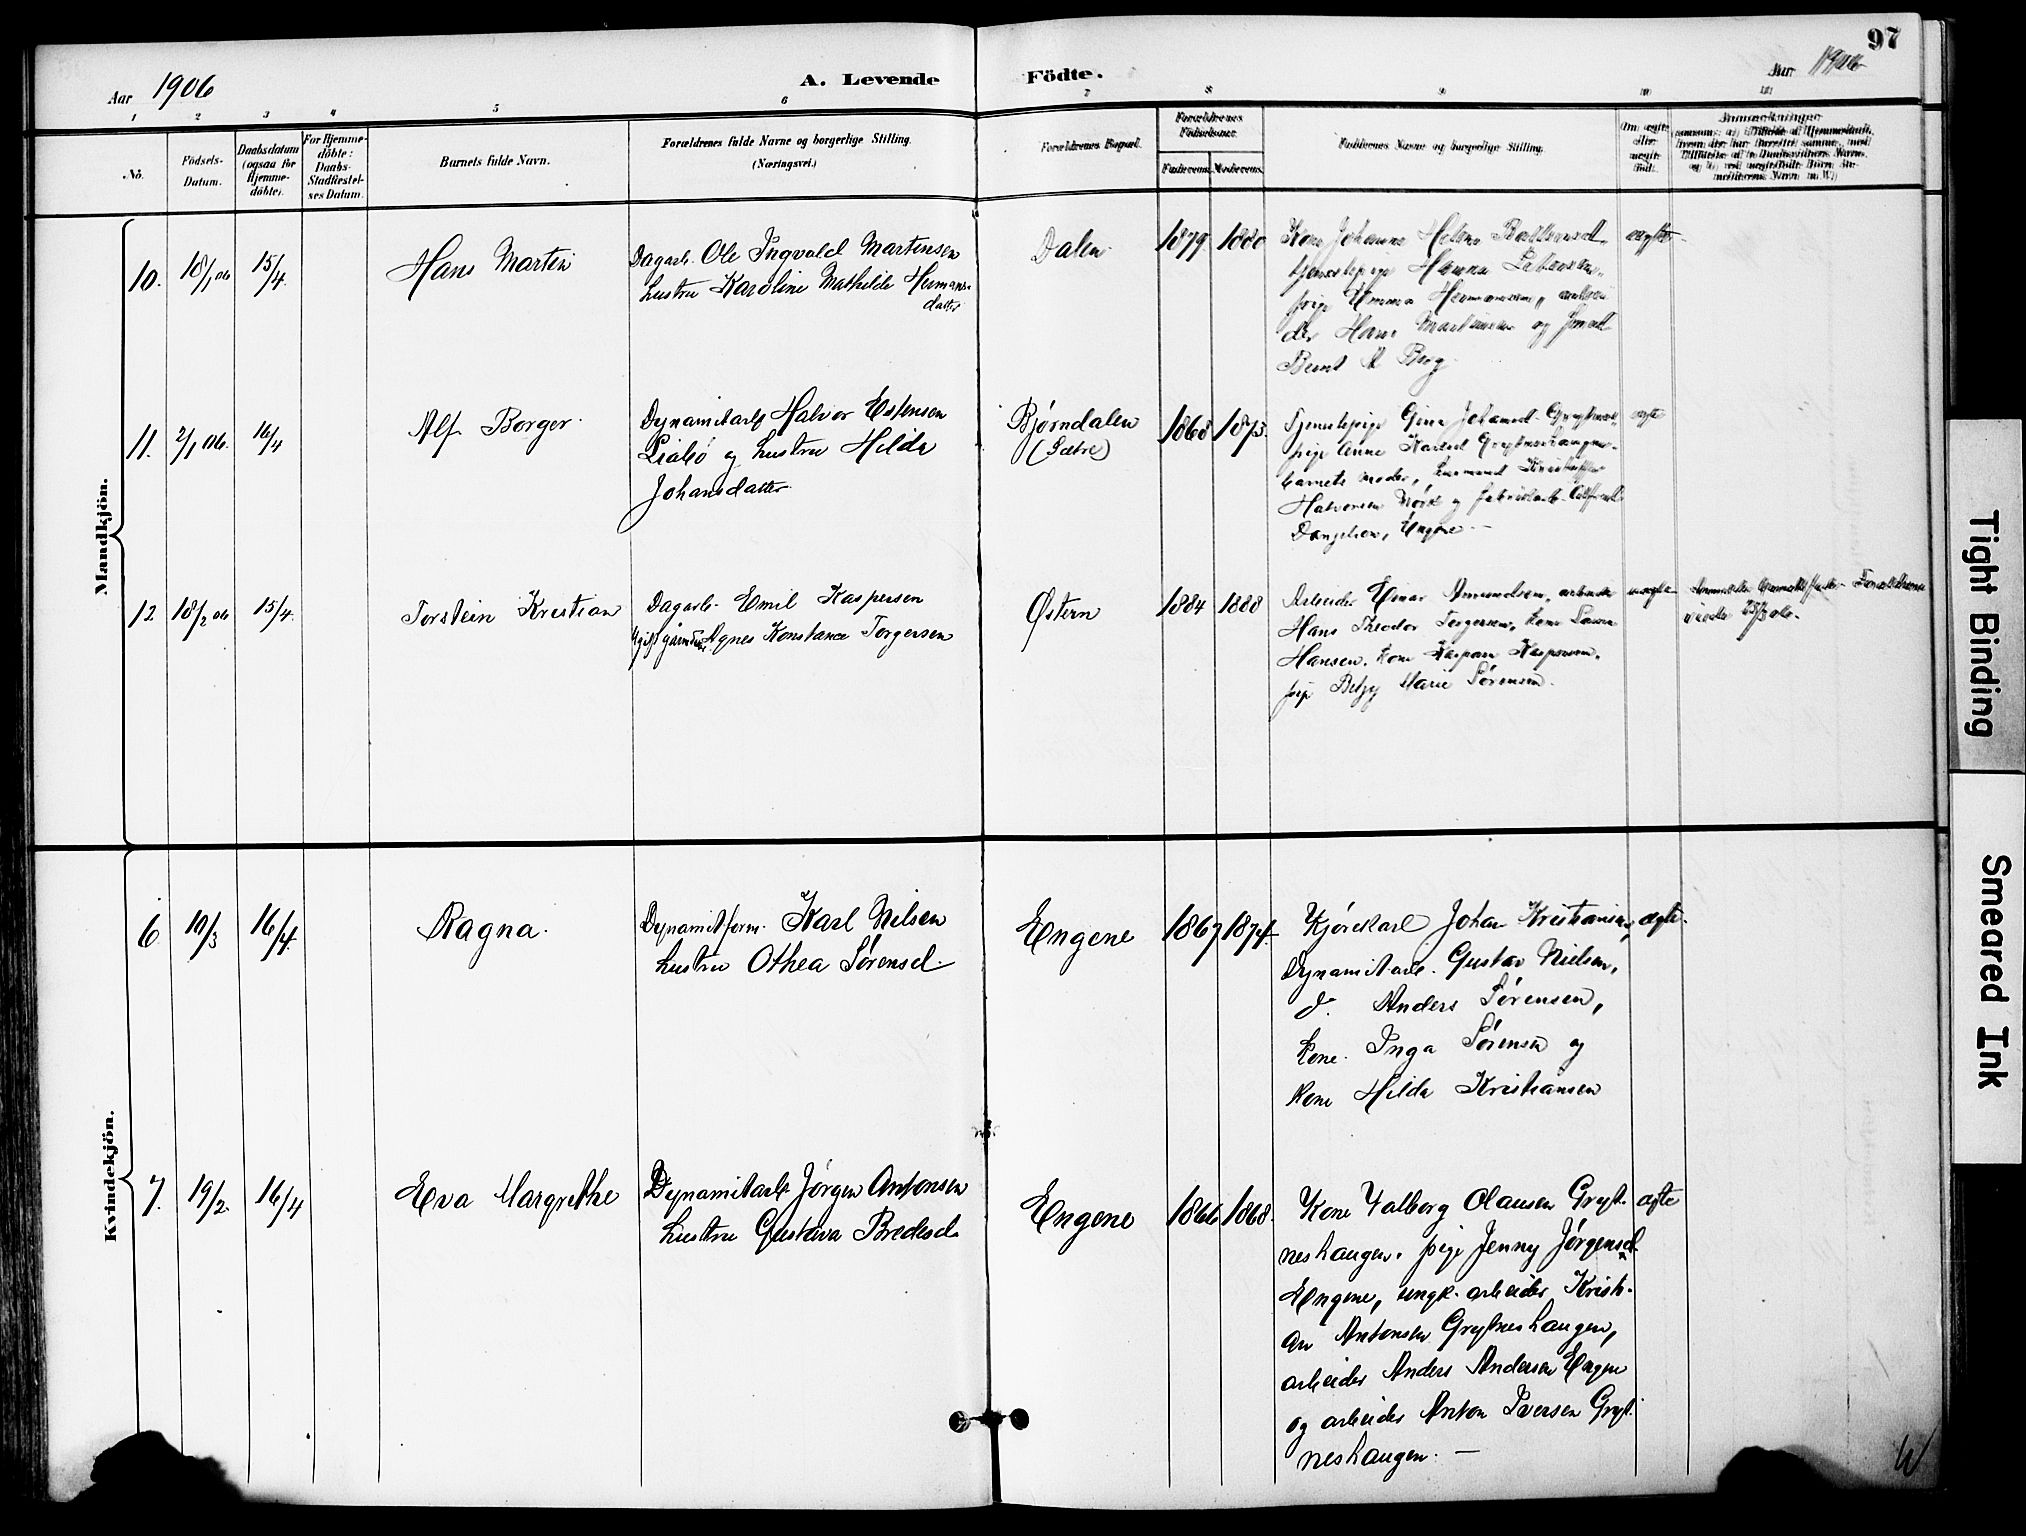 97
Aar 1906
A. Levende Födte.
Aar 1906
1 2 3 4 5 6 7 8 9 10 11
No.
Födsels-
Datum.
Daabsdatum
(ogsaa for
Hjemme-
döbte).
For Hjemme-
döbte:
Daabs-
Stadfæstel-
ses Datum.
Barnets fulde Navn.
Forældrenes fulde Navne og borgerlige Stilling.
(Næringsvei.)
Forældrenes Bopæl.
Forældrenes
Födselsaar.
Faderens Moderens
Faddernes Navne og borgerlige Stilling.
Om ægte
eller
uægte
födt.
Anmærkninger
Mandkjön.
10. 18/1 06 15/4
Hans Martin
Dagarb. Ole Ingvald Martinsen
hustru Karoline Mathilde Hermans-
datter
Dalen
1879 1880
Kone Johanne Helene
tjenestepige Hanna Petersen,
pige Emma Hermansen, arbei-
der Hans Martinsen og
Bernt A Berg
ægte
11. 2/1 06. 16/4
Alf Borger
Dynamitarb Halvor Estensen
Liabø og hustru Hilda
Johansdatter
Bjørndalen
(Sætre)
1868 1873.
Tjenestepige Gina Johansd.
pige Anna Karlsd Grytneshaugen
barnets moder,
Halvorsen og fabrikarb.
Danielsen, Engene. —
ægte
12 18/2 06 15/4.
Torstein Kristian
Dagarb. Emil Kaspersen
Ugift Agnes Konstance Torgersen
Østern
1884 1888
Arbeider Einar Amundsen, arbeider
Hans Theodor Torgersen, kone
Hansen, kone Kaspersen,
pige Betzy Marie Sørensen.
uægte
Forældrene
viede
Kvindekjön.
6 10/3 16/4
Ragna.
Dynamitform. Karl Nilsen
hustru Othea Sørensd.
Engene
1867 1874
Kjørekarl Johan Kristiansen,
Dynamitarb. Gustav Nielsen,
d. Anders Sørensen,
kone Inga Sørensen og
kone Hilda Kristiansen
ægte.
7. 19/2 16/4
Eva Margrethe
Dynamitarb Jørgen Antonsen
hustru Gustava Bredesd.
Engene
1866 1868.
Kone Valborg Olausen Gryt-
neshaugen, pige Jenny Jørgensd
Engene, ungk. arbeider Kristi-
an Antonsen Grytneshaugen,
arbeider Anders Andersen Engene
og arbeider Anton Iversen Gryt-
neshaugen. —
ægte
Tight Binding
Smeared Ink